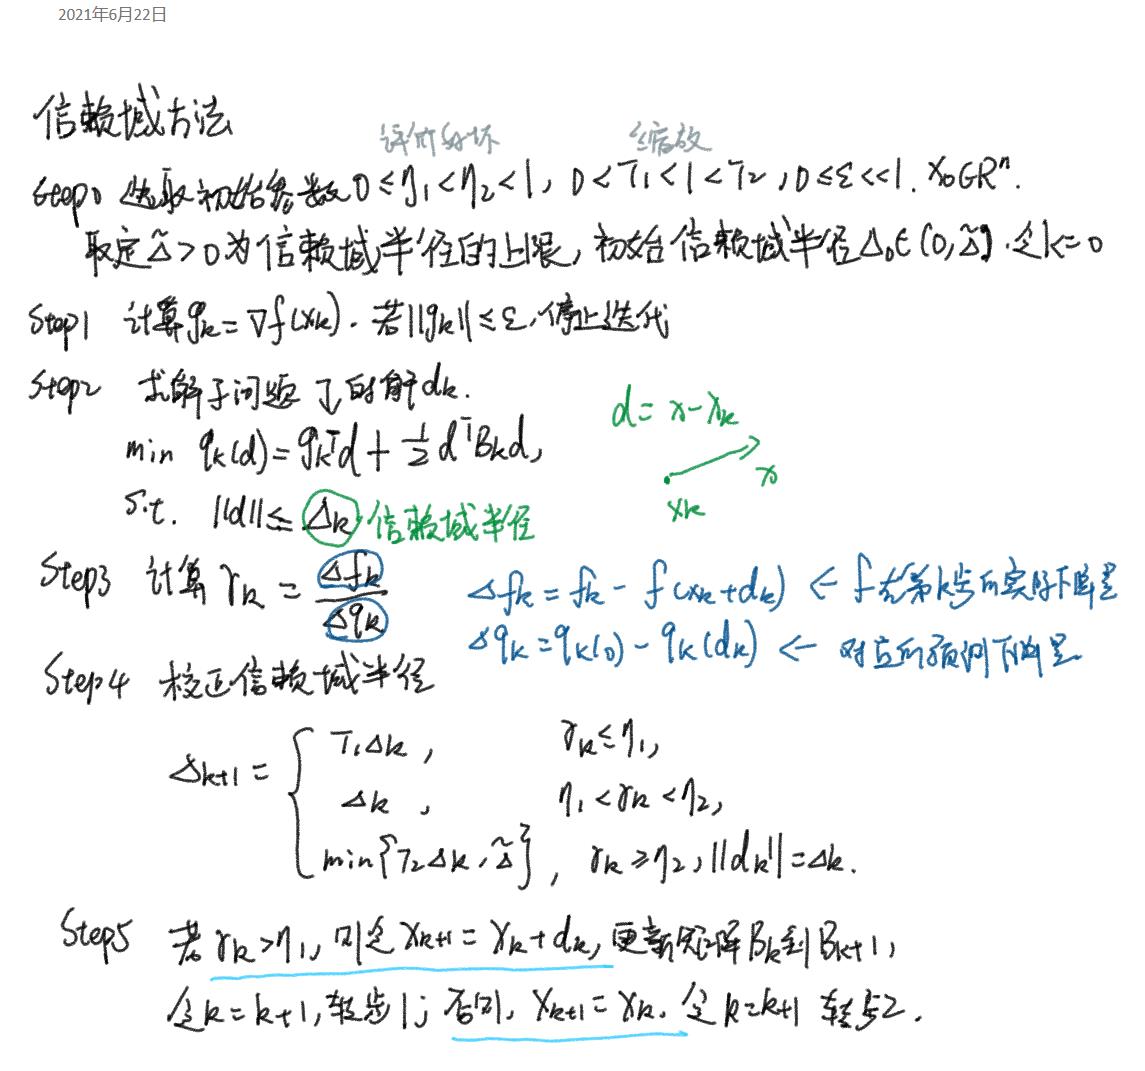 2021年6月22日
信赖域方法
评价好坏 缩放
Step0 选取初始参数 0≤η₁<η₂<1, 0<τ₁<1<τ₂, 0≤ε<<1. x₀∈Rⁿ.
取定Δ̃>0为信赖域半径的上限, 初始信赖域半径Δ₀∈(0,Δ̃]. 令k=0
Step1 计算gₖ=∇f(xₖ). 若||gₖ||≤ε, 停止迭代
Step2 求解子问题↓的解dₖ.
d=x-xₖ
min qₖ(d)=gₖᵀd+½dᵀBₖd,
x
xₖ
s.t. ||d||≤Δₖ 信赖域半径
Step3 计算 rₖ = Δfₖ/Δqₖ
Δfₖ=fₖ-f(xₖ+dₖ) ← f在第k步的实际下降量
Δqₖ=qₖ(0)-qₖ(dₖ) ← 对应的预测下降量
Step4 校正信赖域半径
Δₖ₊₁= { τ₁Δₖ, rₖ≤η₁,
Δₖ, η₁<rₖ<η₂,
min{τ₂Δₖ, Δ̃}, rₖ≥η₂, ||dₖ||=Δₖ.
Step5 若rₖ>η₁, 则令xₖ₊₁=xₖ+dₖ, 更新矩阵Bₖ到Bₖ₊₁,
令k=k+1, 转步1; 否则, xₖ₊₁=xₖ. 令k=k+1 转步2.